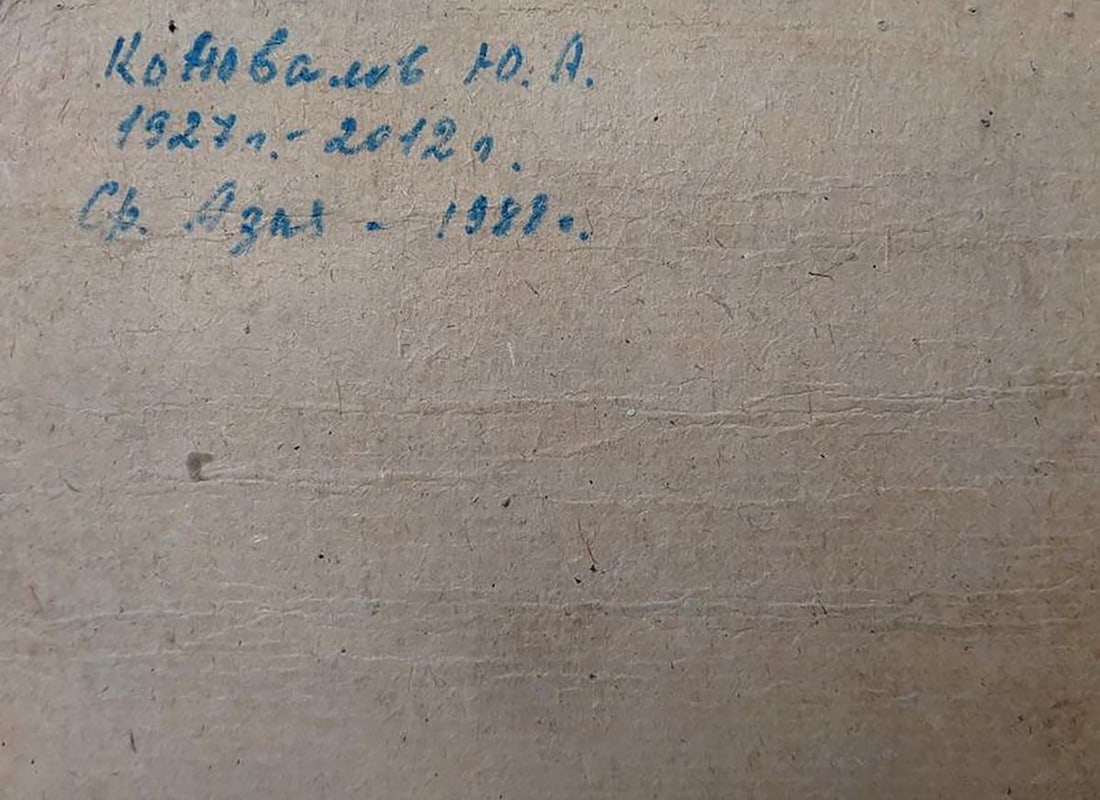 Коновалов Ю. А.
1927 г. - 2012 г.
Ср. Азия - 1988 г.